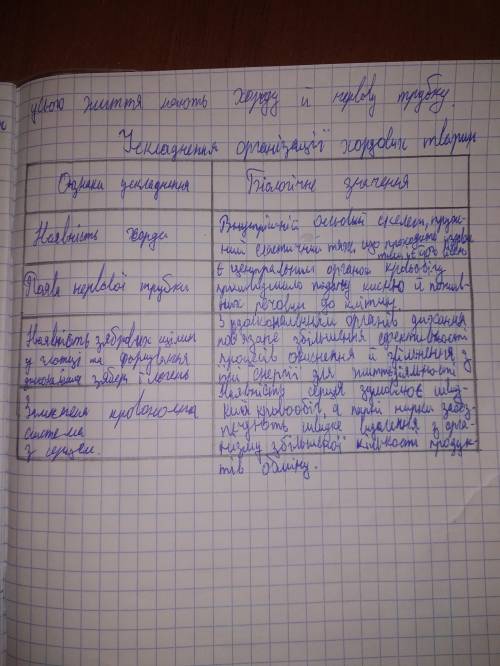 усього життя мають хорду й нервову трубку.
Ускладнення організації хордових тварин
Ознаки ускладнення
Біологічне значення
Наявність хорди
Внутрішній осьовий скелет, пруж-
ний еластичний тяж, що проходить
Поява нервової трубки
Є центральним органом кровообігу
пришвидшило подачу кисню й пожив-
них речовин до клітин.
Наявність зябрових щілин
у глотці та формування
зябер і легень
З удосконаленням органів дихання
пов'язане збільшення ефективності
процесів окиснення й звільнення
при енергії для життєдіяльності
Замкнена кровоносна
система
з серцем.
Наявність серця зумовлює швид-
кий кровообіг, а парні нирки забез-
печують швидке видалення з орга-
нізму збільшеної кількості продук-
тів обміну.